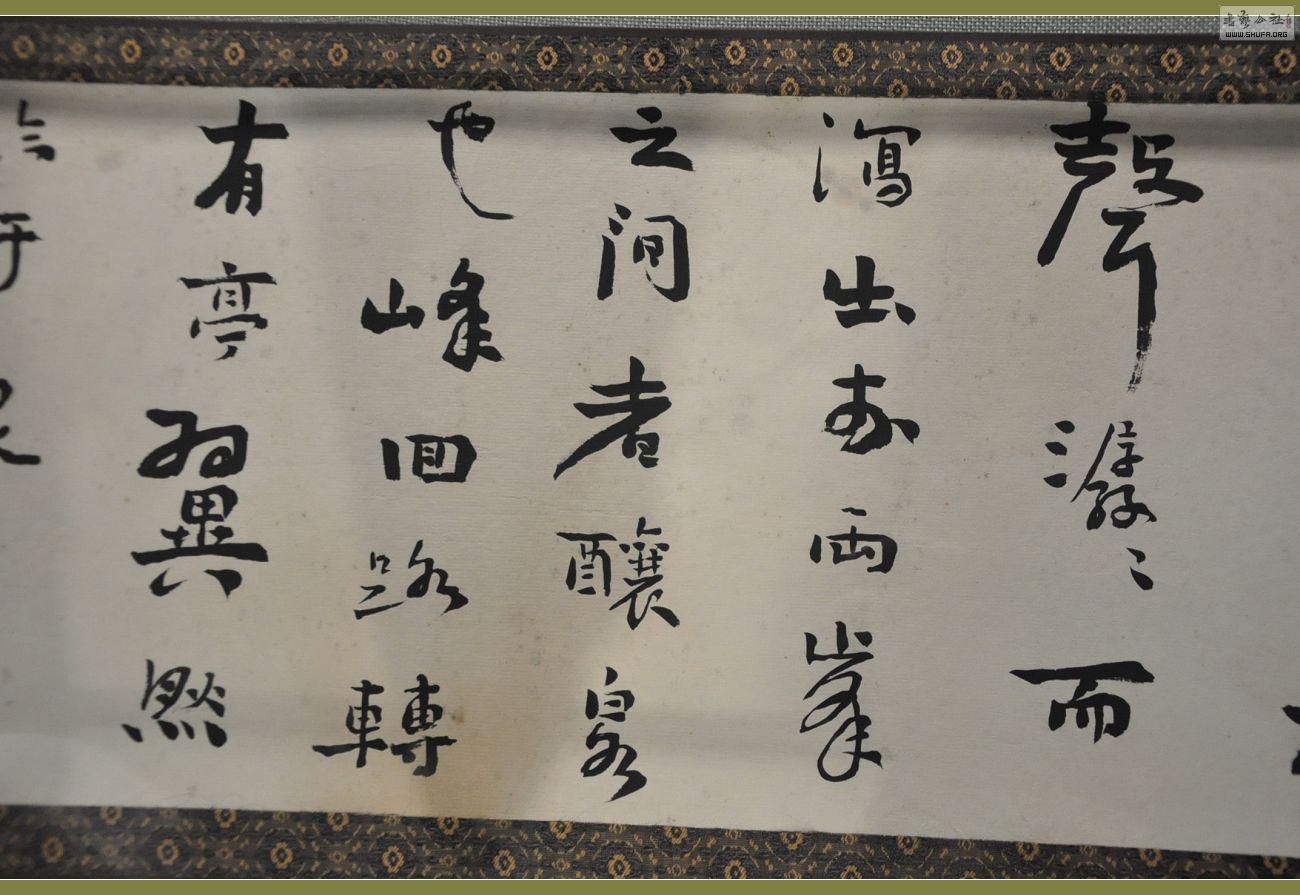 聲潺〻而
瀉出於兩峯
之間者釀泉
也峰回路轉
有亭翼然
臨于泉
书法公社
WWW.SHUFA.ORG